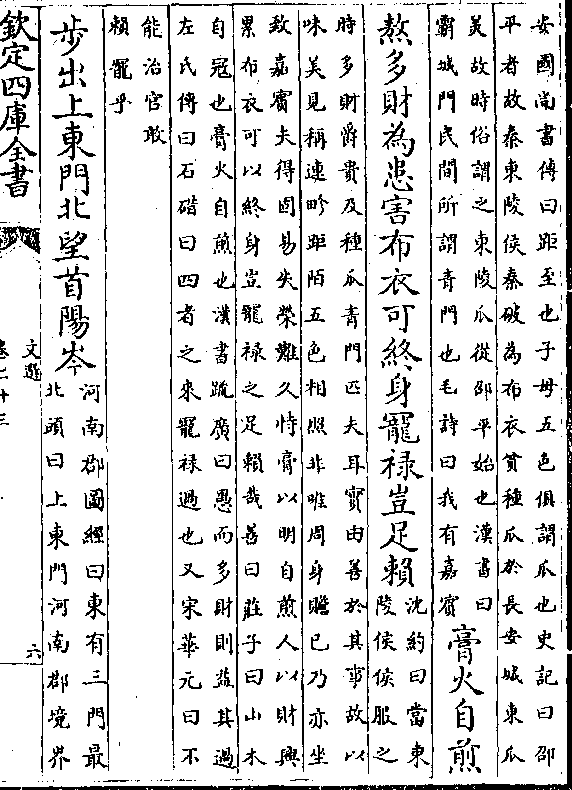 安國尚書傳曰距至也子母五色俱謂瓜也史記曰邵
平者故秦東陵侯秦破為布衣貧種瓜於長安城東瓜
美故時俗謂之東陵瓜從邵平始也漢書曰
霸城門民間所謂青門也毛詩曰我有嘉賔
膏火自煎
熬多財為患害布衣可終身寵禄豈足賴
沈約曰當東
陵侯侯服之
時多財爵貴及種瓜青門匹夫耳實由善於其事故以
味美見稱連畛距陌五色相照非唯周身贍已乃亦坐
致嘉賓夫得固易失榮難久恃膏以明自煎人以財興
累布衣可以終身豈寵禄之足賴哉善曰莊子曰山木
自冠也膏火自煎也漢書疏廣曰愚而多財則益其過
左氏傳曰石碏曰四者之來寵禄過也又宋華元曰不
能治官敢
賴寵乎
步出上東門北望首陽岑
河南郡圖經曰東有三門最
北頭曰上東門河南郡境界
欽定四庫全書
文選
六